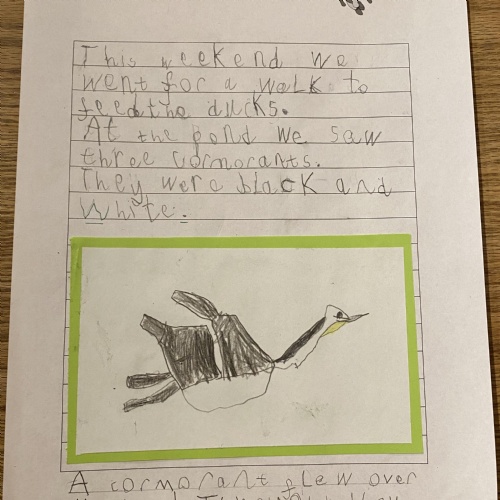 This weekend we
went for a walk to
feed the ducks.
At the pond we saw
three cormorants.
They were black and
white.
A cormorant flew over